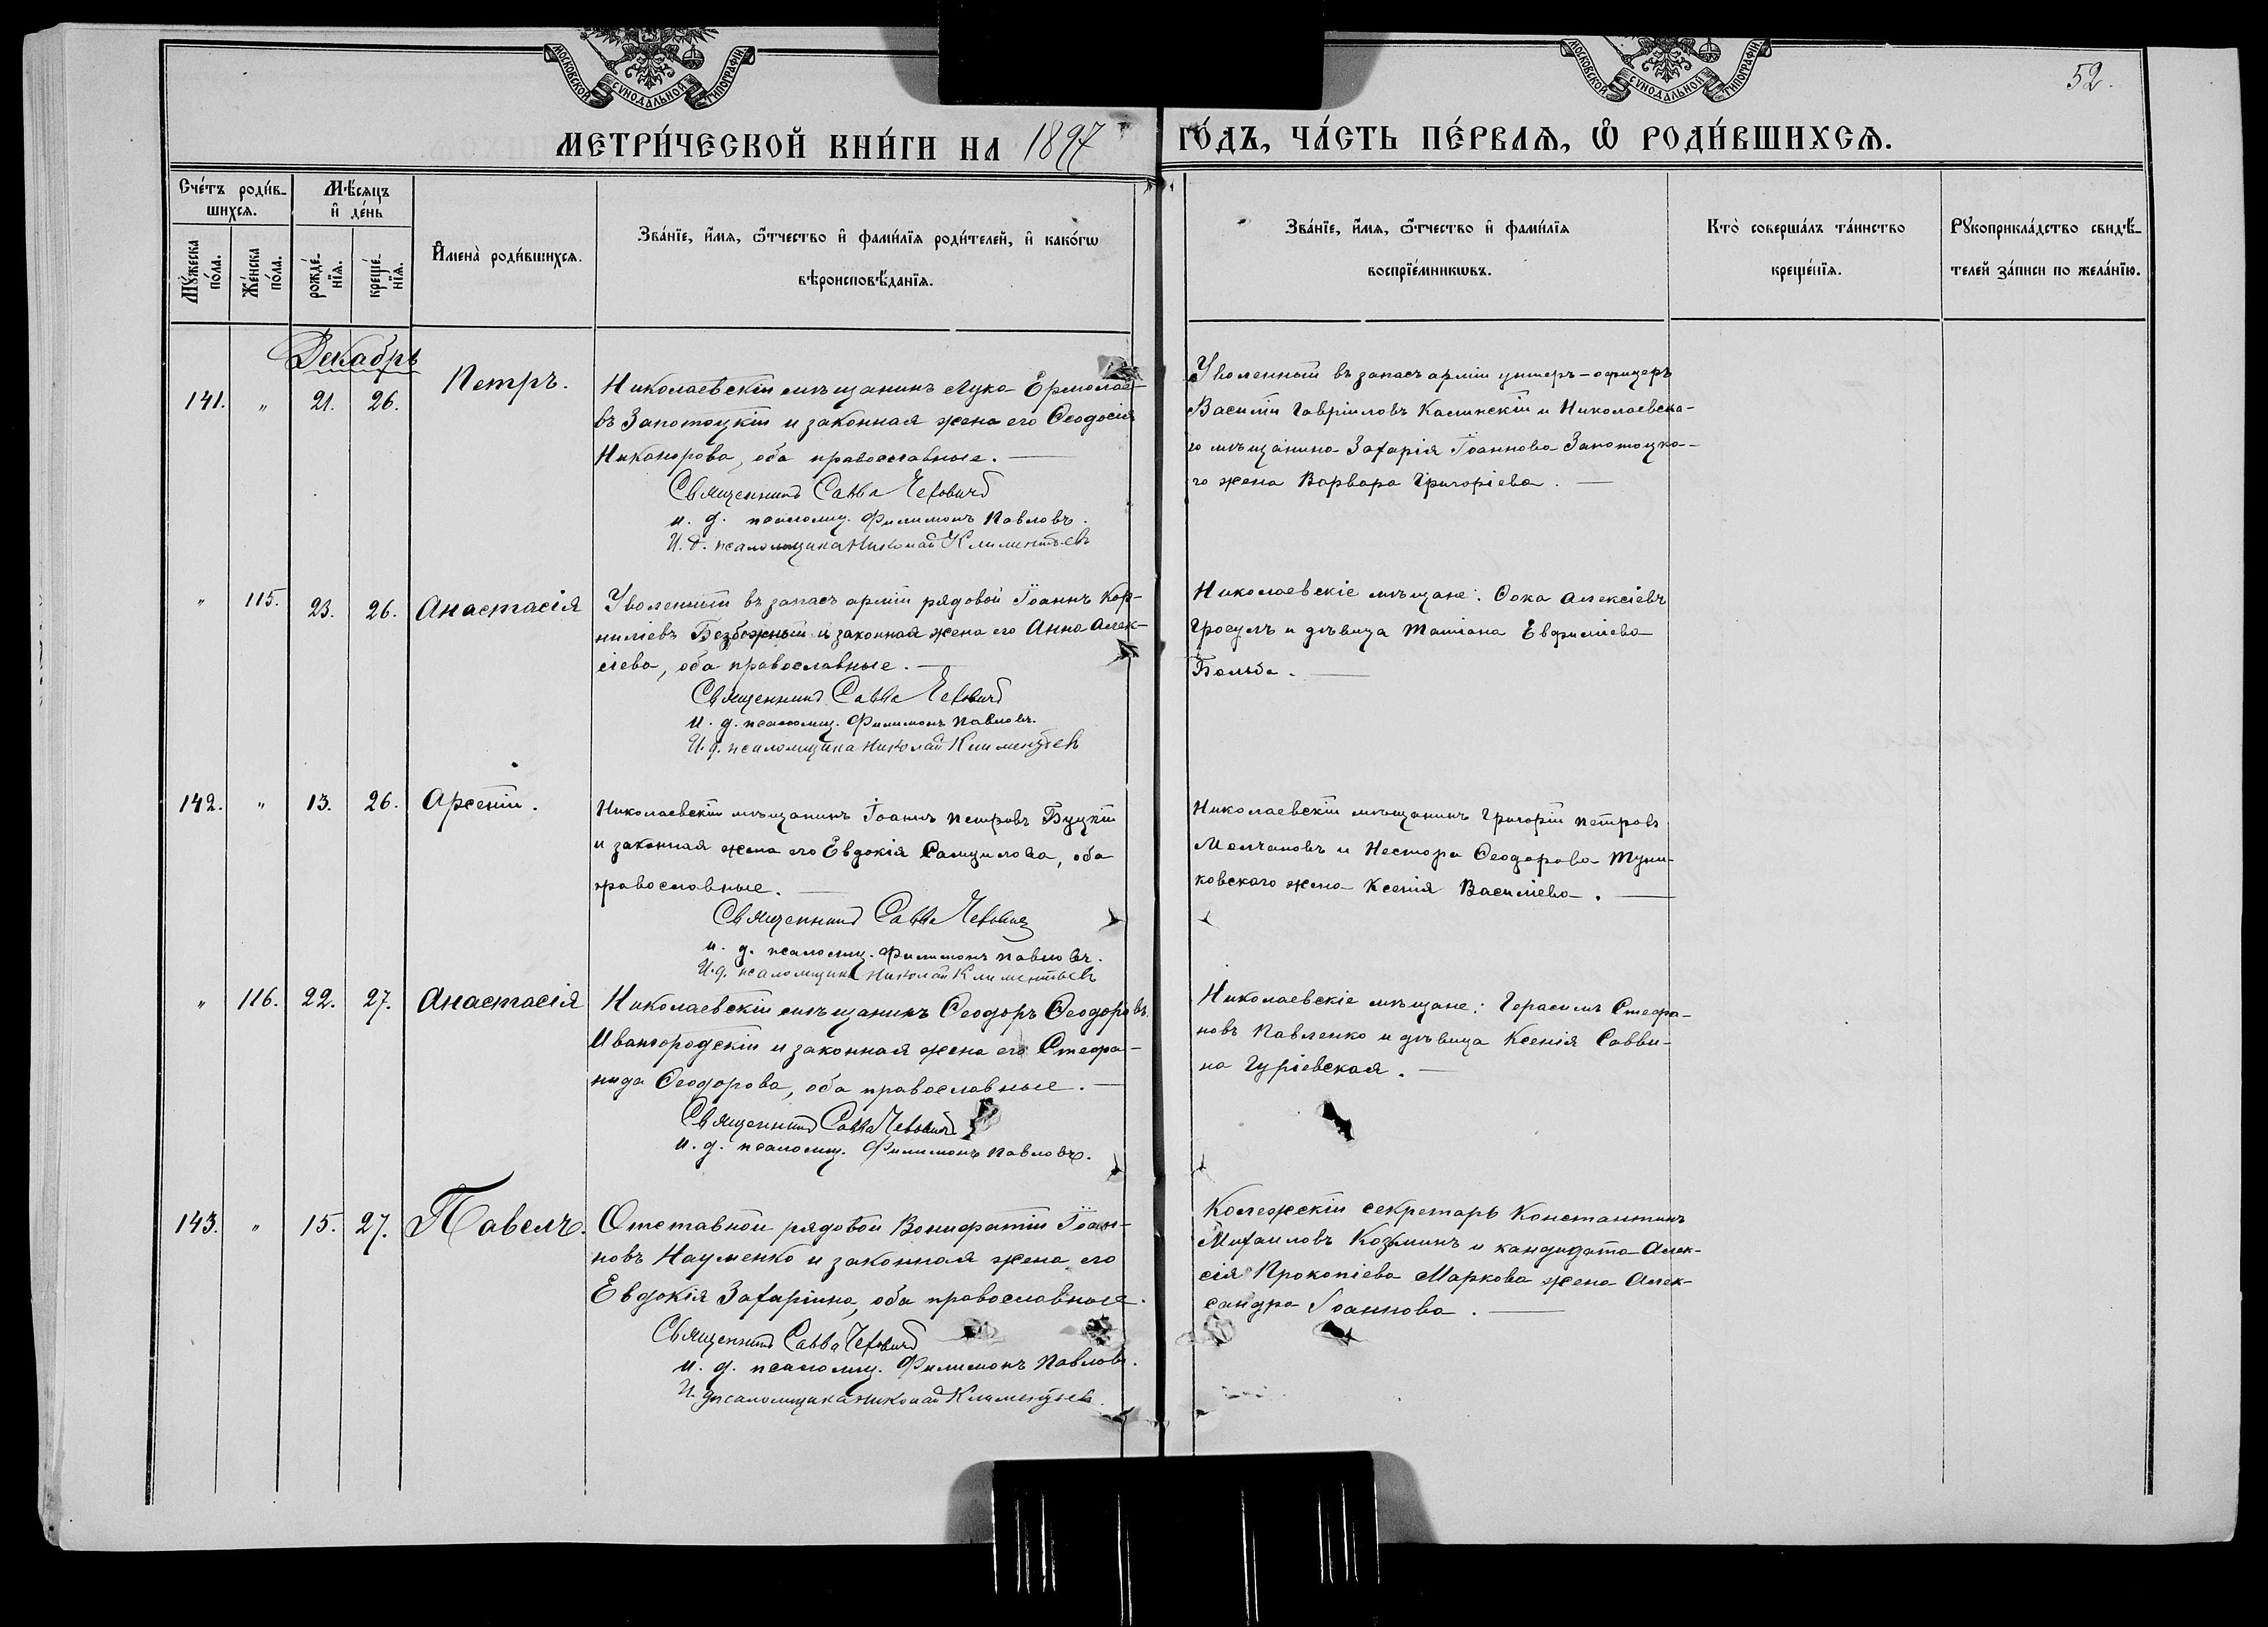 МОСКОВСКОЙ СѴНОДАЛЬНОЙ ТИПОГРАФІИ
МОСКОВСКОЙ СѴНОДАЛЬНОЙ ТИПОГРАФІИ
52.
МЕТРИ́ЧЕСКОЙ КНИ́ГИ НА 1897
ГО́ДЪ, ЧА́СТЬ ПЕ́РВАѦ, Ѡ РОДИ́ВШИХСѦ.
Сче́тъ роди́в-
шихсѧ.
Мѣ́сѧцъ
и҆ де́нь
Мꙋ́жеска
по́ла.
Же́нска
по́ла.
рожде́-
нїѧ.
креще́-
нїѧ.
И҆мена̀ роди́вшихсѧ.
Зва́нїе, и҆́мѧ, ѻ҆́тчество и҆ фами́лїѧ роди́телей, и҆ како́гѡ
вѣроисповѣ́данїѧ.
Зва́нїе, и҆́мѧ, ѻ҆́тчество и҆ фами́лїѧ
воспрїе́мникѡвъ.
Кто̀ соверша́лъ та́инство
креще́нїѧ.
Рꙋкоприкла́дство свидѣ́-
телей за́писи по жела́нїю.
Декабрь
141. " 21. 26. Петръ.
Николаевскій мѣщанинъ Лука Ермолае-
въ Запотоцкій и законная жена его Ѳеодосія
Никанорова, оба православные.
Священникъ Савва Чеховичъ
и. д. псаломщ. Филимонъ Павловъ.
И. д. псаломщика Николай Климентьевъ
Уволенный въ запасъ арміи унтеръ-офицеръ
Василій Гавріиловъ Калинскій и Николаевска-
го мѣщанина Захарія Іоаннова Запотоцка-
го жена Варвара Григоріева.
" 115. 23. 26. Анастасія
Уволенный въ запасъ арміи рядовой Іоаннъ Кор-
ниліевъ Безбожный и законная жена его Анна Алек-
сіева, оба православные.
Священникъ Савва Чеховичъ
и. д. псаломщ. Филимонъ Павловъ.
И. д. псаломщика Николай Климентьевъ
Николаевскіе мѣщане: Ѳока Алексіевъ
Гросулъ и дѣвица Татіана Евфиміева
Больба.
142. " 13. 26. Арсеній.
Николаевскій мѣщанинъ Іоаннъ Петровъ Буцкій
и законная жена его Евдокія Самуилова, оба
православные.
Священникъ Савва Чеховичъ
и. д. псаломщ. Филимонъ Павловъ.
И. д. псаломщика Николай Климентьевъ
Николаевскій мѣщанинъ Григорій Петровъ
Молчановъ и Нестора Ѳеодорова Туни-
ковскаго жена Ксенія Василіева.
" 116. 22. 27. Анастасія
Николаевскій мѣщанинъ Ѳеодоръ Ѳеодоровъ
Ивангородскій и законная жена его Стефа-
нида Ѳеодорова, оба православные.
Священникъ Савва Чеховичъ
и. д. псаломщ. Филимонъ Павловъ.
Николаевскіе мѣщане: Герасимъ Стефа-
новъ Павленко и дѣвица Ксенія Савви-
на Гуріевская.
143. " 15. 27. Павелъ.
Отставной рядовой Вонифатій Іоан-
новъ Науменко и законная жена его
Евдокія Захаріина, оба православные.
Священникъ Савва Чеховичъ
и. д. псаломщ. Филимонъ Павловъ.
И. д. псаломщика Николай Климентьевъ.
Колежскій секретарь Константинъ
Михаиловъ Козьминъ и кандидата Алек-
сія Прокопіева Маркова жена Алек-
сандра Іоаннова.